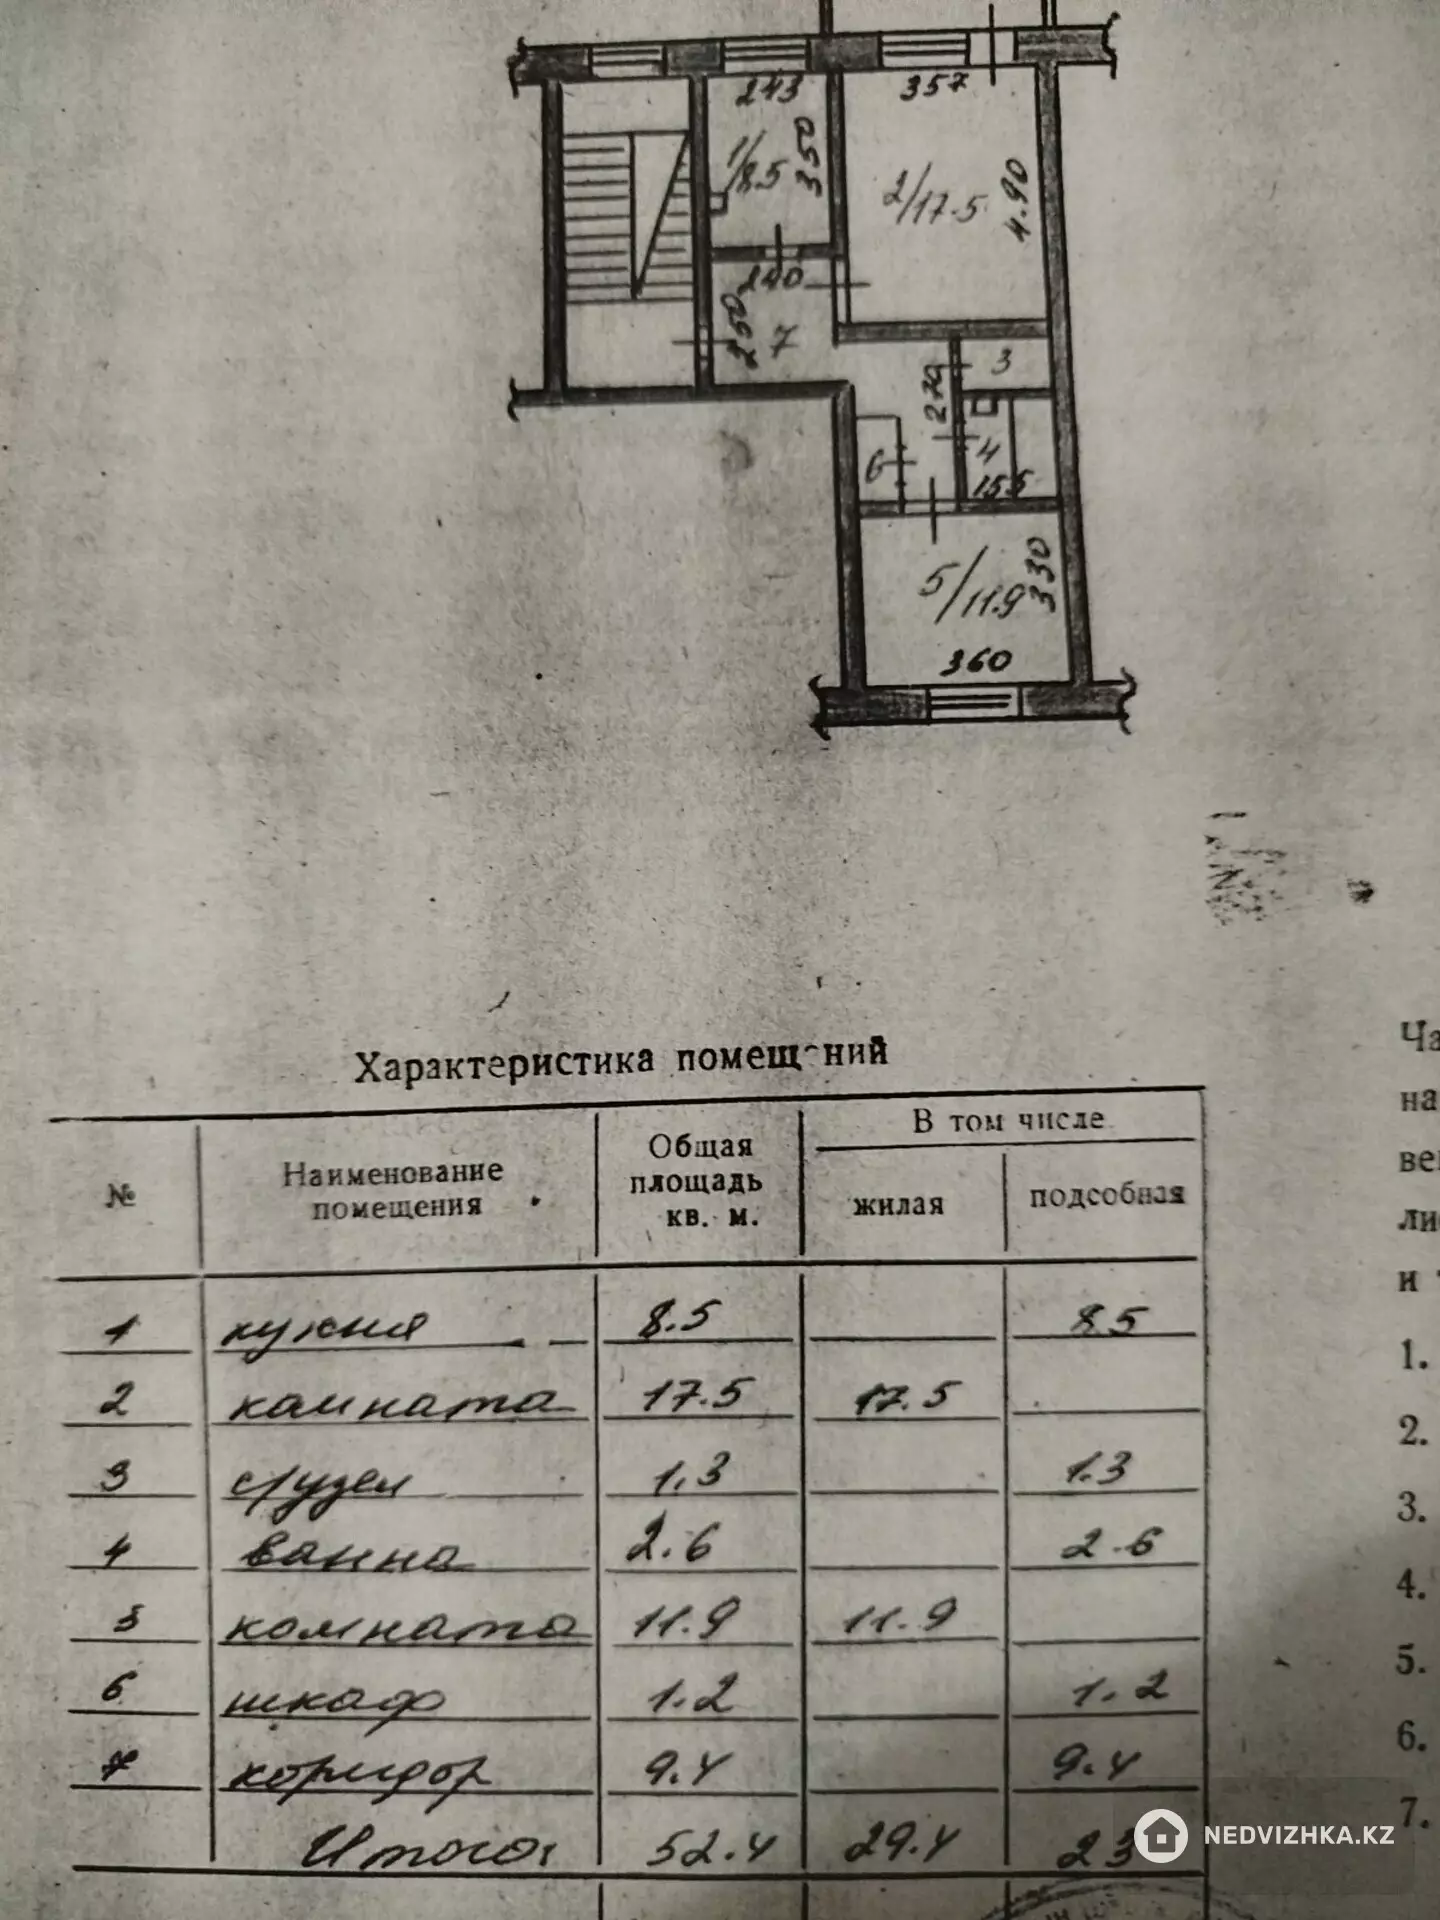 243
357
350
1/8.5
2/17.5
4.90
240
250
7
3
270
6
4
155
5/11.9
330
360
Характеристика помещений
№ Наименование помещения Общая площадь кв. м. В том числе
жилая подсобная
1 кухня 8.5 8.5
2 комната 17.5 17.5
3 с/узел 1.3 1.3
4 ванна 2.6 2.6
5 комната 11.9 11.9
6 шкаф 1.2 1.2
7 коридор 9.4 9.4
Итого: 52.4 29.4 23
Ча
на
ве
ли
и
1.
2.
3.
4.
5.
6.
7.
NEDVIZHKA.KZ